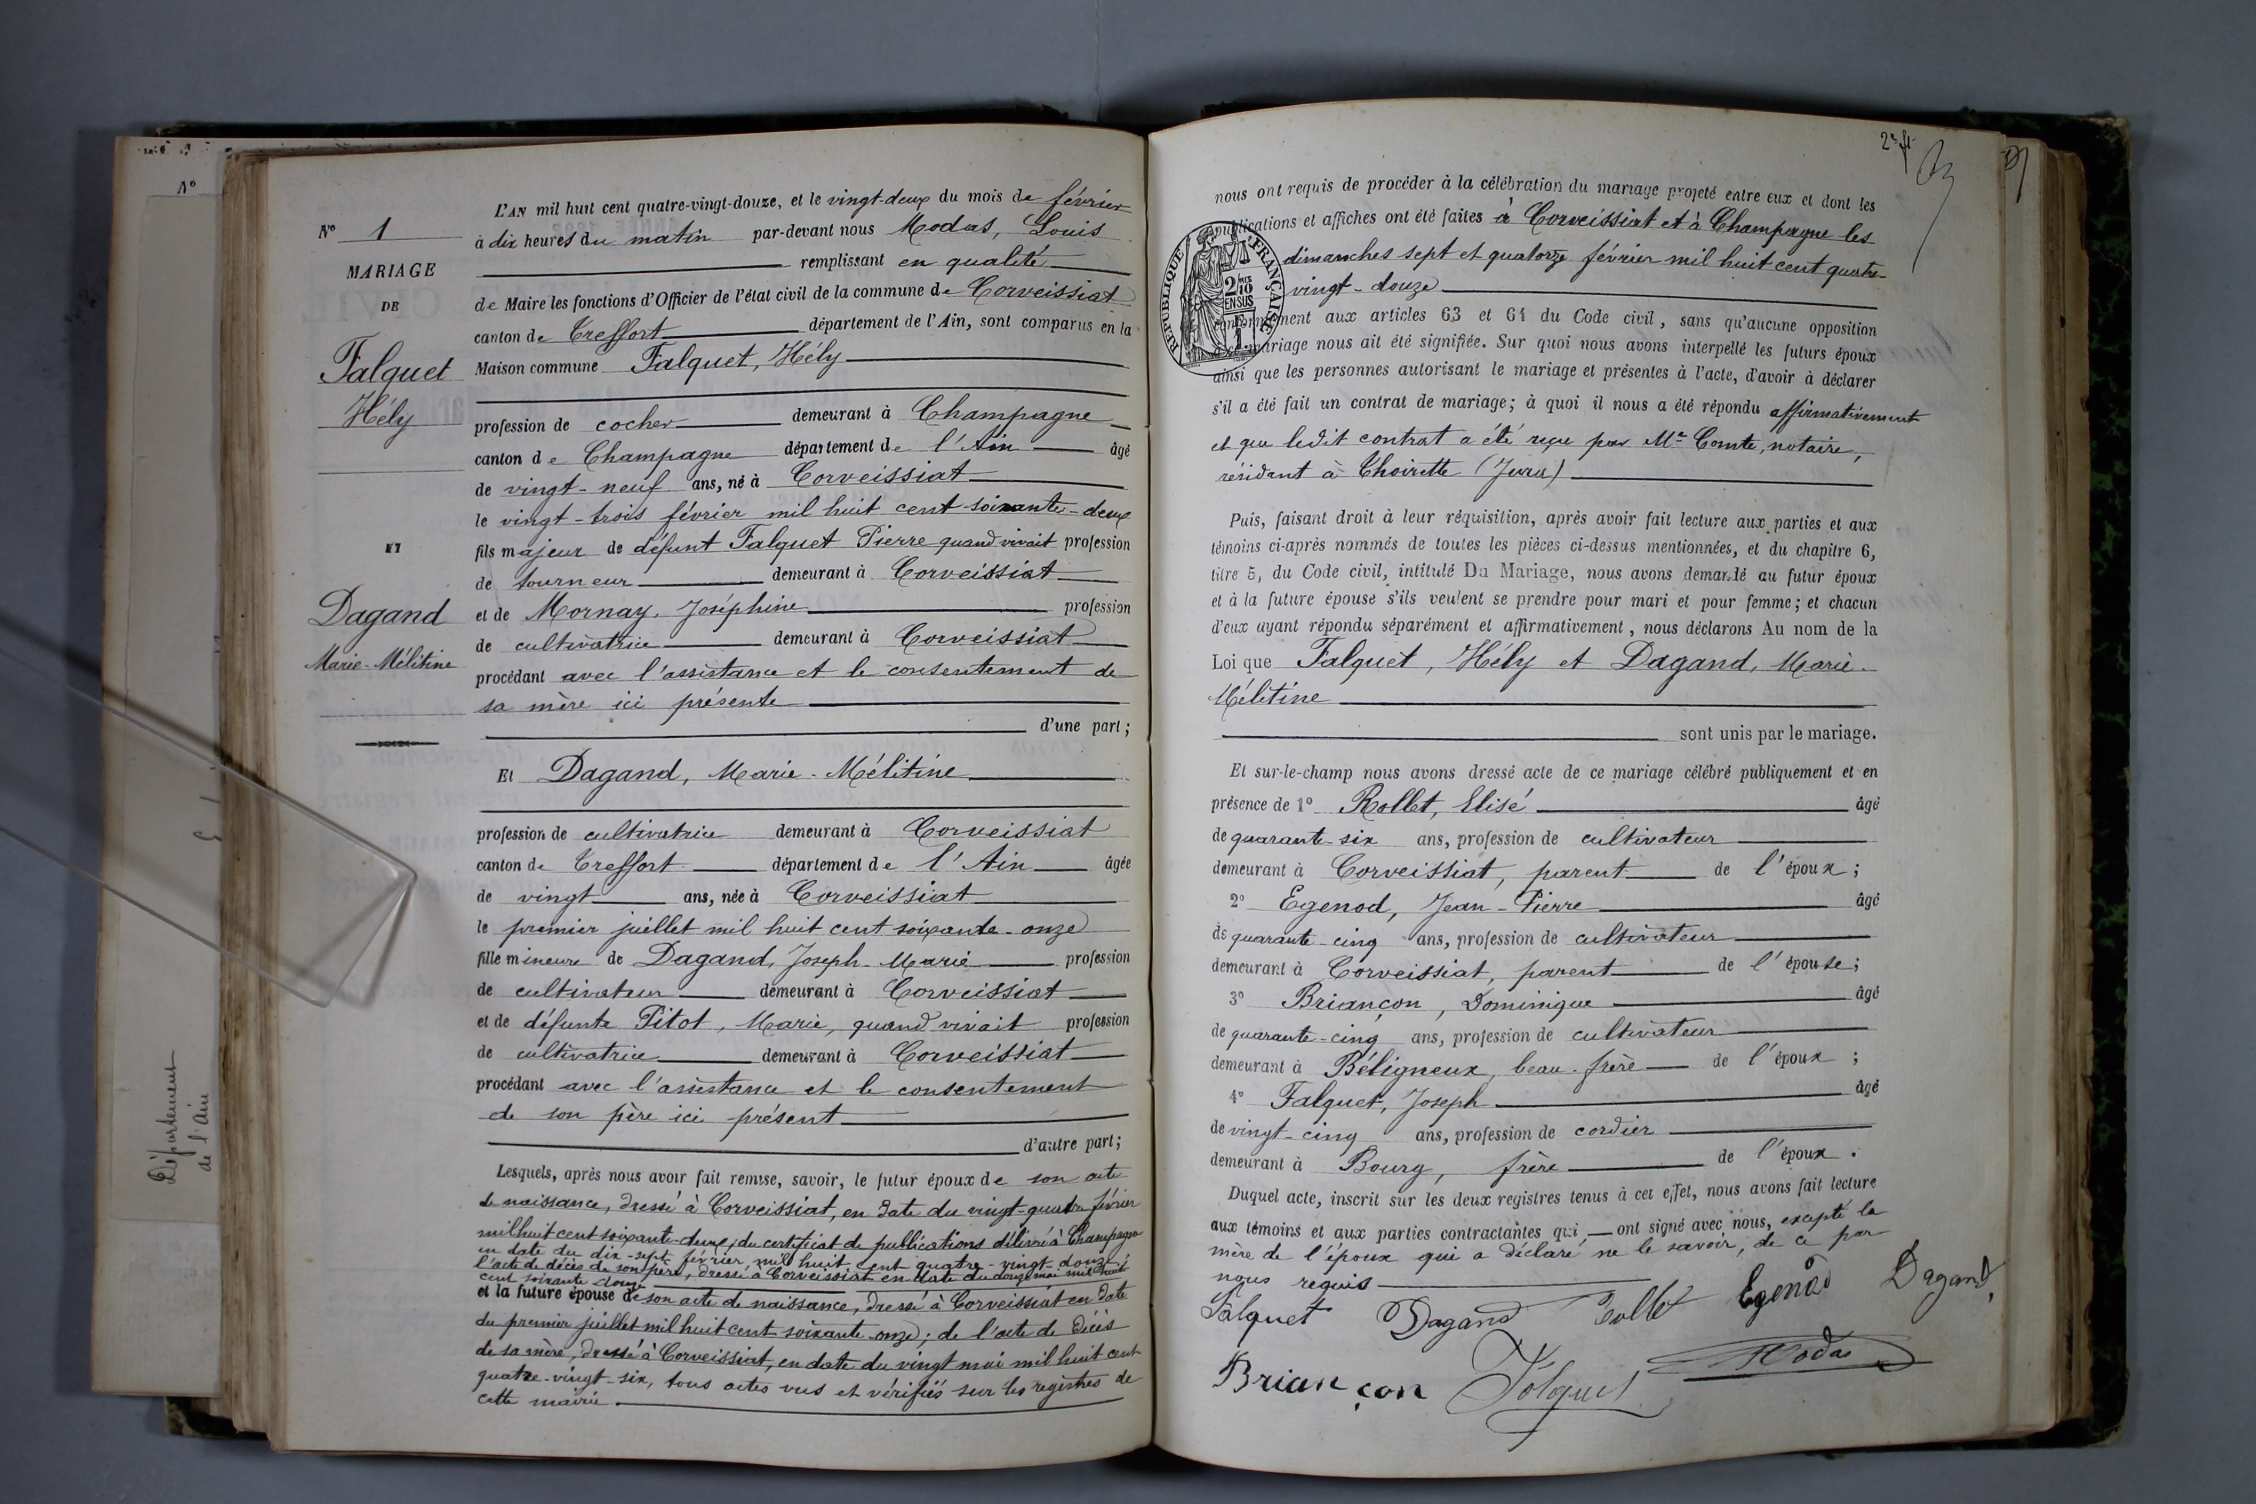 Nº 1
MARIAGE
DE
Falquet
Hély
ET
Dagand
Marie-Mélitine
L'AN mil huit cent quatre-vingt-douze, et le vingt-deux du mois de février
à dix heures du matin par-devant nous Modas, Louis
remplissant en qualité
de Maire les fonctions d'Officier de l'état civil de la commune de Corveissiat
canton de Treffort département de l'Ain, sont comparus en la
Maison commune Falquet, Hély
profession de cocher demeurant à Champagne
canton de Champagne département de l'Ain âgé
de vingt-neuf ans, né à Corveissiat
le vingt-trois février mil huit cent soixante-deux
fils majeur de défunt Falquet Pierre quand vivait profession
de tourneur demeurant à Corveissiat
et de Mornay, Joséphine profession
de cultivatrice demeurant à Corveissiat
procédant avec l'assistance et le consentement de
sa mère ici présente
d'une part;
Et Dagand, Marie-Mélitine
profession de cultivatrice demeurant à Corveissiat
canton de Treffort département de l'Ain âgée
de vingt ans, née à Corveissiat
le premier juillet mil huit cent soixante-onze
fille mineure de Dagand, Joseph-Marie profession
de cultivateur demeurant à Corveissiat
et de défunte Pitot, Marie, quand vivait profession
de cultivatrice demeurant à Corveissiat
procédant avec l'assistance et le consentement
de son père ici présent
d'autre part;
Lesquels, après nous avoir fait remise, savoir, le futur époux de son acte
de naissance, dressé à Corveissiat, en date du vingt-quatre février
mil huit cent soixante-deux; du certificat de publications délivré à Champagne
en date du dix-sept février mil huit cent quatre-vingt-douze;
l'acte de décès de son père, dressé à Corveissiat en date du douze mai mil huit
cent soixante-douze
et la future épouse de son acte de naissance, dressé à Corveissiat en date
du premier juillet mil huit cent soixante-onze; de l'acte de décès
de sa mère, dressé à Corveissiat, en date du vingt mai mil huit cent
quatre-vingt-six, tous actes vus et vérifiés sur les registres de
cette mairie.
Nº
Département
de l'Ain
nous ont requis de procéder à la célébration du mariage projeté entre eux et dont les
publications et affiches ont été faites à Corveissiat et à Champagne les
dimanches sept et quatorze février mil huit cent quatre-
vingt-douze
conformément aux articles 63 et 64 du Code civil, sans qu'aucune opposition
à ce mariage nous ait été signifiée. Sur quoi nous avons interpellé les futurs époux
ainsi que les personnes autorisant le mariage et présentes à l'acte, d'avoir à déclarer
s'il a été fait un contrat de mariage; à quoi il nous a été répondu affirmativement
et que ledit contrat a été reçu par Me Comte, notaire,
résidant à Thoirette (Jura)
Puis, faisant droit à leur réquisition, après avoir fait lecture aux parties et aux
témoins ci-après nommés de toutes les pièces ci-dessus mentionnées, et du chapitre 6,
titre 5, du Code civil, intitulé Du Mariage, nous avons demandé au futur époux
et à la future épouse s'ils veulent se prendre pour mari et pour femme; et chacun
d'eux ayant répondu séparément et affirmativement, nous déclarons Au nom de la
Loi que Falquet, Hély et Dagand, Marie-
Mélitine
sont unis par le mariage.
Et sur-le-champ nous avons dressé acte de ce mariage célébré publiquement et en
présence de 1º Rollet, Elisé âgé
de quarante-six ans, profession de cultivateur
demeurant à Corveissiat, parent de l'époux;
2º Egenod, Jean-Pierre âgé
de quarante-cinq ans, profession de cultivateur
demeurant à Corveissiat, parent de l'épouse;
3º Briançon, Dominique âgé
de quarante-cinq ans, profession de cultivateur
demeurant à Béligneux, beau-frère de l'époux;
4º Falquet, Joseph âgé
de vingt-cinq ans, profession de cordier
demeurant à Bourg, frère de l'époux.
Duquel acte, inscrit sur les deux registres tenus à cet effet, nous avons fait lecture
aux témoins et aux parties contractantes qui, ont signé avec nous, excepté la
mère de l'époux qui a déclaré ne le savoir, de ce par
nous requis
Falquet Dagand Rollet Egenod Dagand
Briançon Falquet Modas
RÉPUBLIQUE FRANÇAISE
2/10
EN SUS